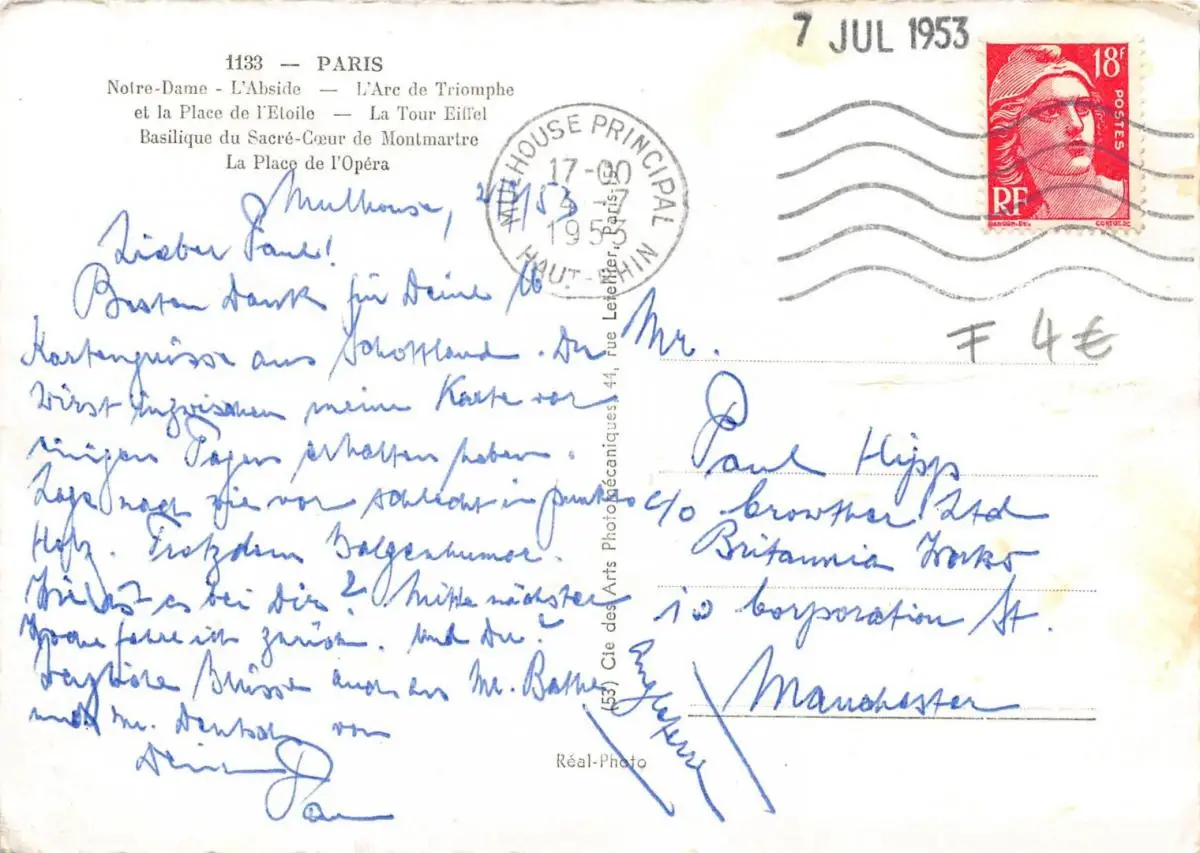 7 JUL 1953
1133 — PARIS
Notre-Dame - L'Abside — L'Arc de Triomphe
et la Place de l'Etoile — La Tour Eiffel
Basilique du Sacré-Cœur de Montmartre
La Place de l'Opéra
18F
POSTES
RF
MULHOUSE PRINCIPAL
17-00
4-7
1953
HAUT-RHIN
Mulhouse, 4/7/53
Lieber Paul!
Besten Dank für Deine lb
Kartengrüsse aus Schottland. Du
wirst inzwischen meine Karte vor
einigen Tagen erhalten haben.
Lage nach wie vor schlecht in punkto
Holz. Trotzdem Galgenhumor.
Wie ist es bei Dir? Mitte nächster
Woche fahre ich zurück. Und Du?
Herzliche Grüsse auch an Mr.
und Mr. Deutsch von
Deinem
(53) Cie des Arts Photomécaniques, 44, rue Letellier, Paris-15e
Réal-Photo
= 4 €
Mr.
Paul Hipp
c/o Crowther Ltd
Britannia Works
10 Corporation St.
Manchester
Angleterre